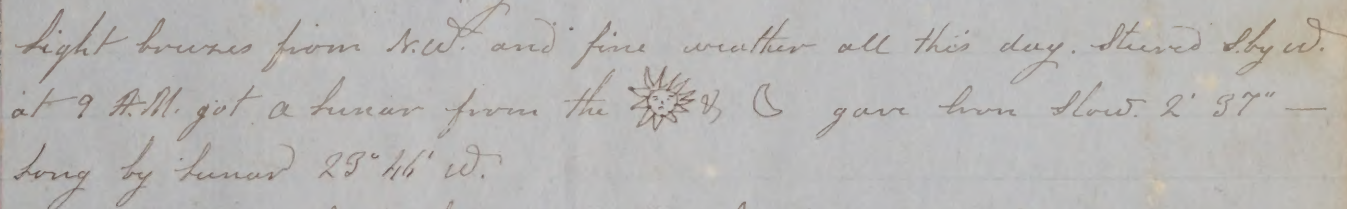 Light breezes from N.W. and fine weather all this day. Steered S. by W.
at 9 A.M. got a Lunar from the ☀ & ☾ gave Cron Slow. 2' 37" —
Long by Lunar 23° 46' W.